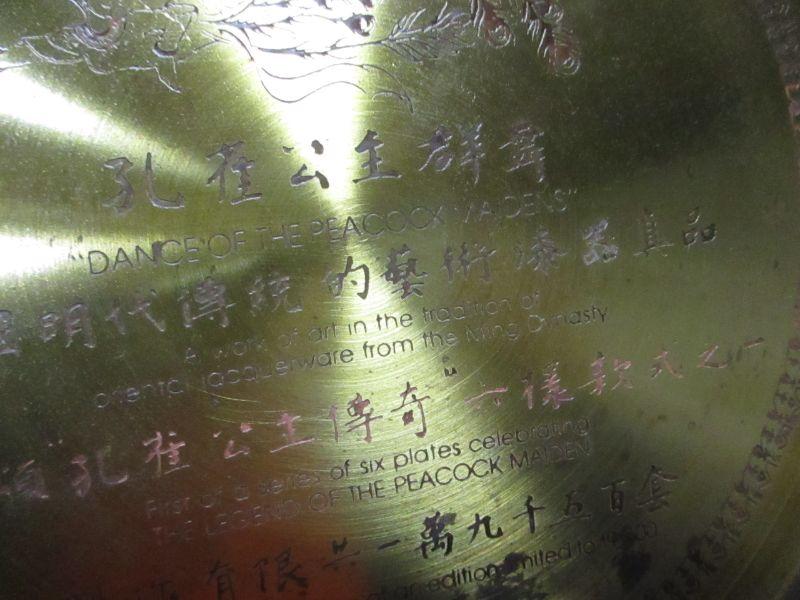 孔雀公主群舞
"DANCE OF THE PEACOCK MAIDENS"
明代傳統的藝術漆器真品
A work of art in the tradition of
oriental lacquerware from the Ming Dynasty
"孔雀公主傳奇"六樣款式之一
First of a series of six plates celebrating
THE LEGEND OF THE PEACOCK MAIDEN
有限共一萬九千五百套
an edition limited to